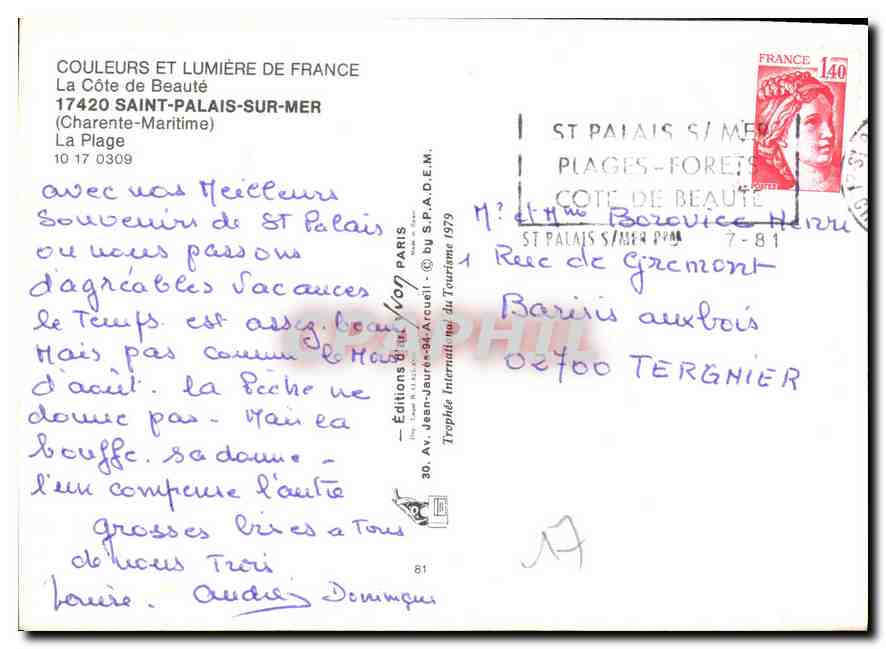 COULEURS ET LUMIÈRE DE FRANCE
La Côte de Beauté
17420 SAINT-PALAIS-SUR-MER
(Charente-Maritime)
La Plage
10 17 0309
avec nos Meilleurs
Souvenirs de St Palais
ou nous passons
d'agréables Vacances
le Temps est assez beau
Mais pas comme le Mois
d'août. la Pêche ne
donne pas - Mais la
bouffe. sa donne -
l'un compense l'autre
grosses bises a Tous
de nous Trois
Louise. Andrée Dominique
81
— Éditions d'art Yvon PARIS
30. Av. Jean-Jaurès-94-Arcueil - © by S.P.A.D.E.M.
Trophée International du Tourisme 1979
CPAPHIL
FRANCE
1,40
POSTES
ST PALAIS S/ MER
PLAGES - FORETS
COTE DE BEAUTE
ST PALAIS S/MER PPAL 7-81
Mr et Mme Henri
1 Rue de Gremont
Barisis aux bois
02700 TERGNIER
17